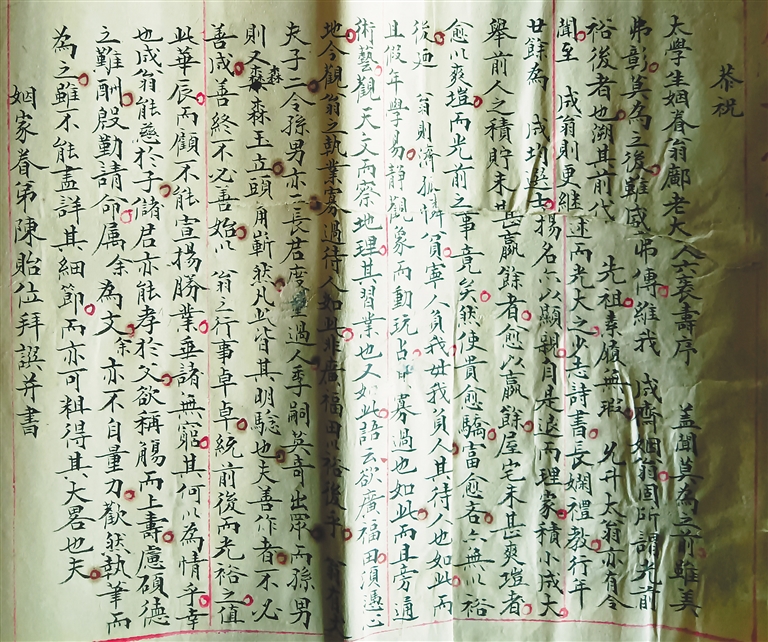 恭祝
太學生姻眷翁鄺老大人六袠壽序 蓋聞莫為之前雖美
弗彰莫為之後雖盛弗傳維我 成齋姻翁固所謂光前
裕後者也溯其前代 先祖素履無瑕 允升太翁亦有令
聞至 成翁則更継述而光大之少志詩書長嫻禮教行年
廿餘為 成均進士揚名以顯親自是退而理家積小成大
舉前人之積貯未甚贏餘者愈以贏餘屋宅未甚爽塏者
愈以爽塏而光前之事竟矣然使貴愈驕富愈吝亦無以裕
後廼 翁則濟孤憐貧寧人負我毋我負人其待人也如此而
且假年學易靜觀象而動玩占其寡過也如此而且旁通
術藝觀天文而察地理其習業也又如此語云欲廣福田須憑心
地今觀翁之執業寡過待人如此非廣福田以裕後乎 翁
夫子二令孫男亦二長君度量過人季嗣英奇出眾而孫男
則又森森玉立頭角嶄然凡此皆其明騐也夫善作者不必
善成善終不必善始以 翁之行事卓卓統前後而光裕之值
此華辰而顧不能宣揚勝業垂諸無窮其何以為情乎幸
也成翁能慈於子儲君亦能孝於父欲稱觴而上壽慮碩德
之難酬殷勤請命属余為文余亦不自量力歡然執筆而
為之雖不能盡詳其細節而亦可粗得其大畧也夫
姻家眷弟陳貽位拜譔并書